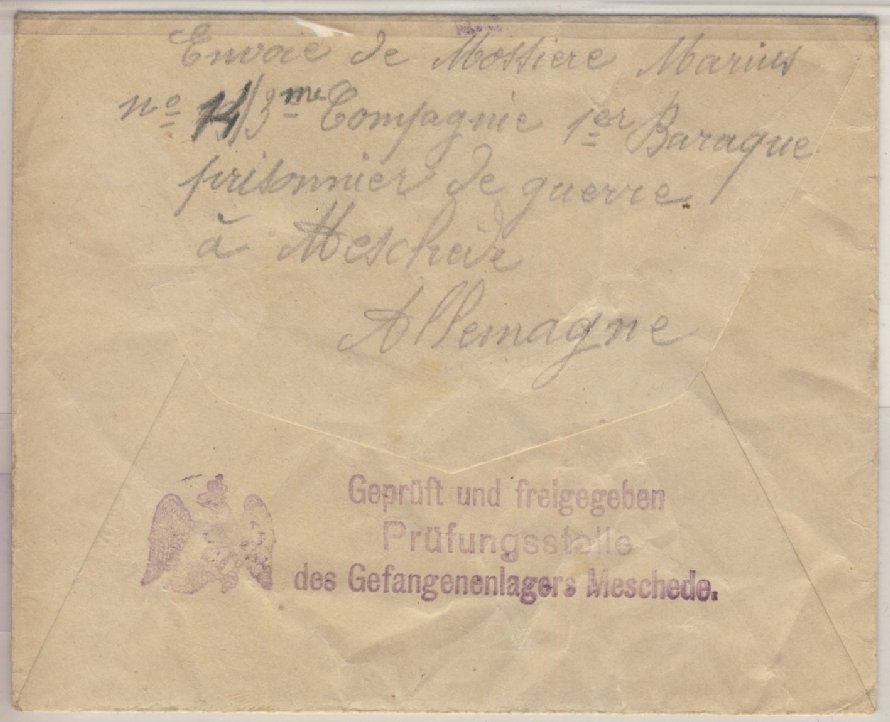 Envoie de Mostiere Marius
no 14/3me Compagnie 1er Baraque
prisonnier de guerre
à Meschede
Allemagne
Geprüft und freigegeben
Prüfungsstelle
des Gefangenenlagers Meschede.